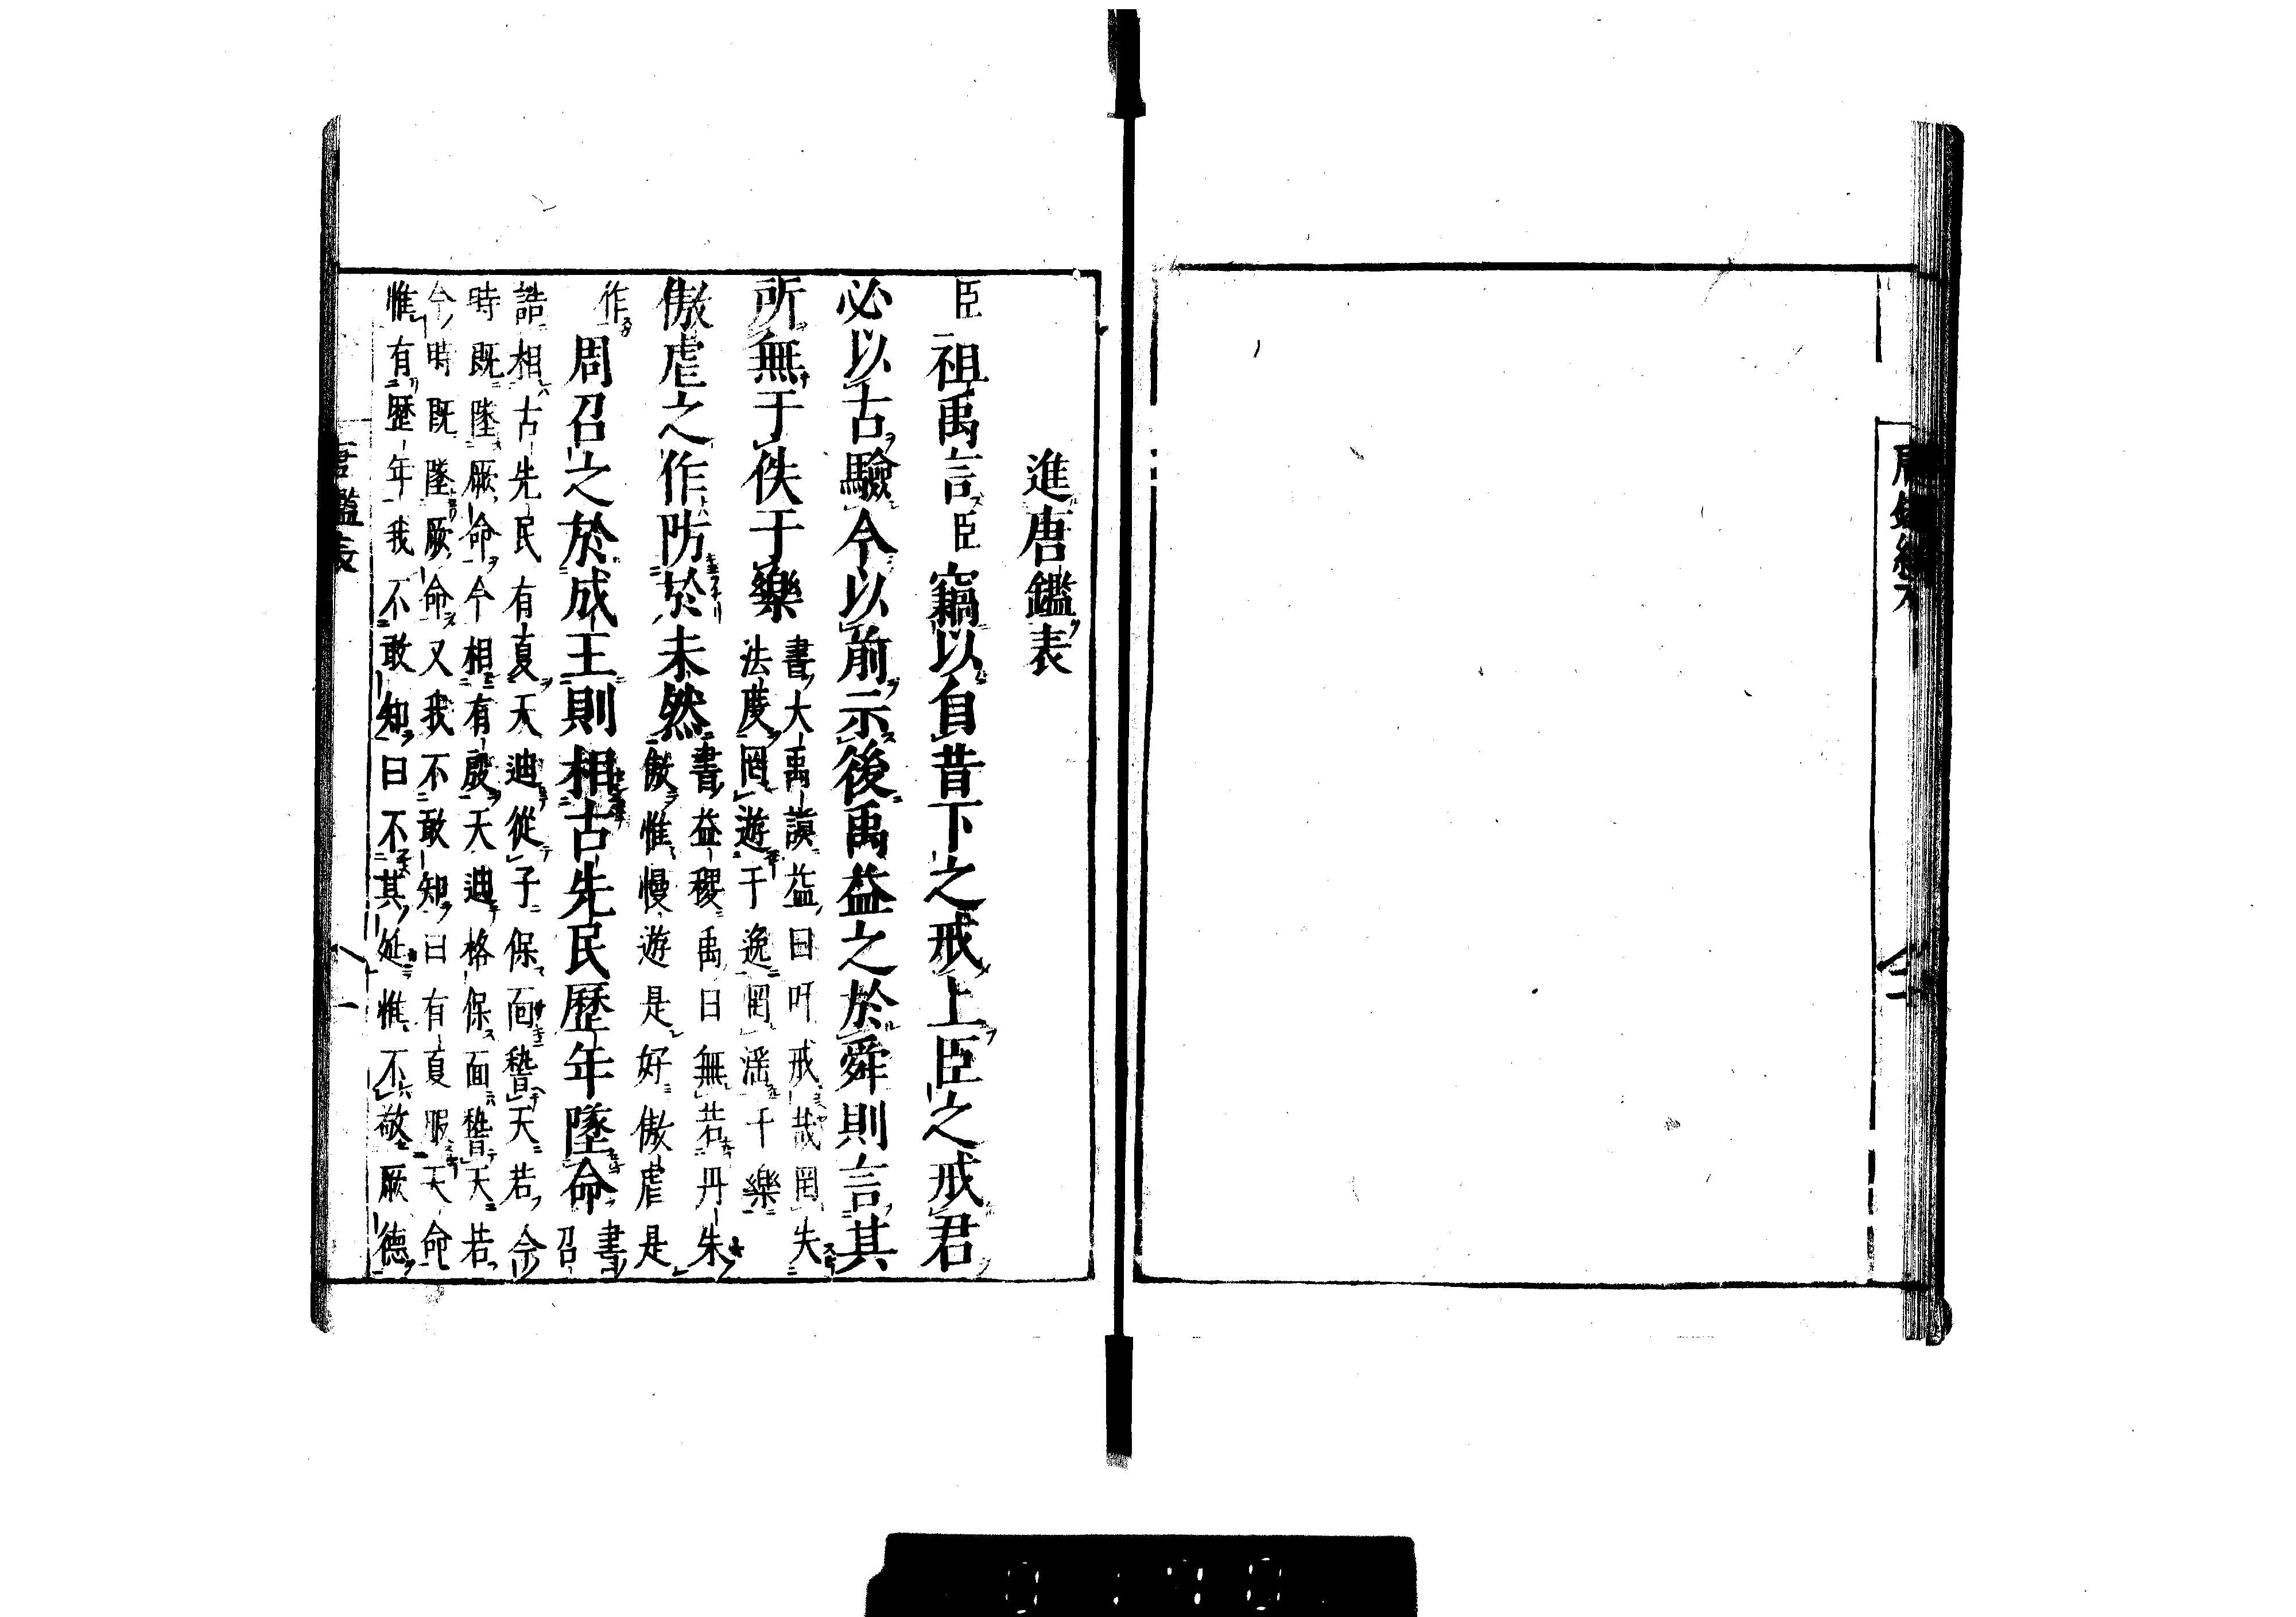 進唐鑑表
臣祖禹言臣竊以自昔下之戒上臣之戒君
必以古驗今以前示後禹益之於舜則言其
所無于佚于樂
書大禹謨益曰吁戒哉罔失
法度罔遊于逸罔淫于樂
傲虐之作防於未然
書益稷禹曰無若丹朱
傲惟慢遊是好傲虐是
作
周召之於成王則相古先民歷年墜命
書召
誥相古先民有夏天迪從子保面稽天若今
時既墜厥命今相有殷天迪格保面稽天若
今時既墜厥命又我不敢知曰有夏服天命
惟有歷年我不敢知曰不其延惟不敬厥德
唐鑑表
一